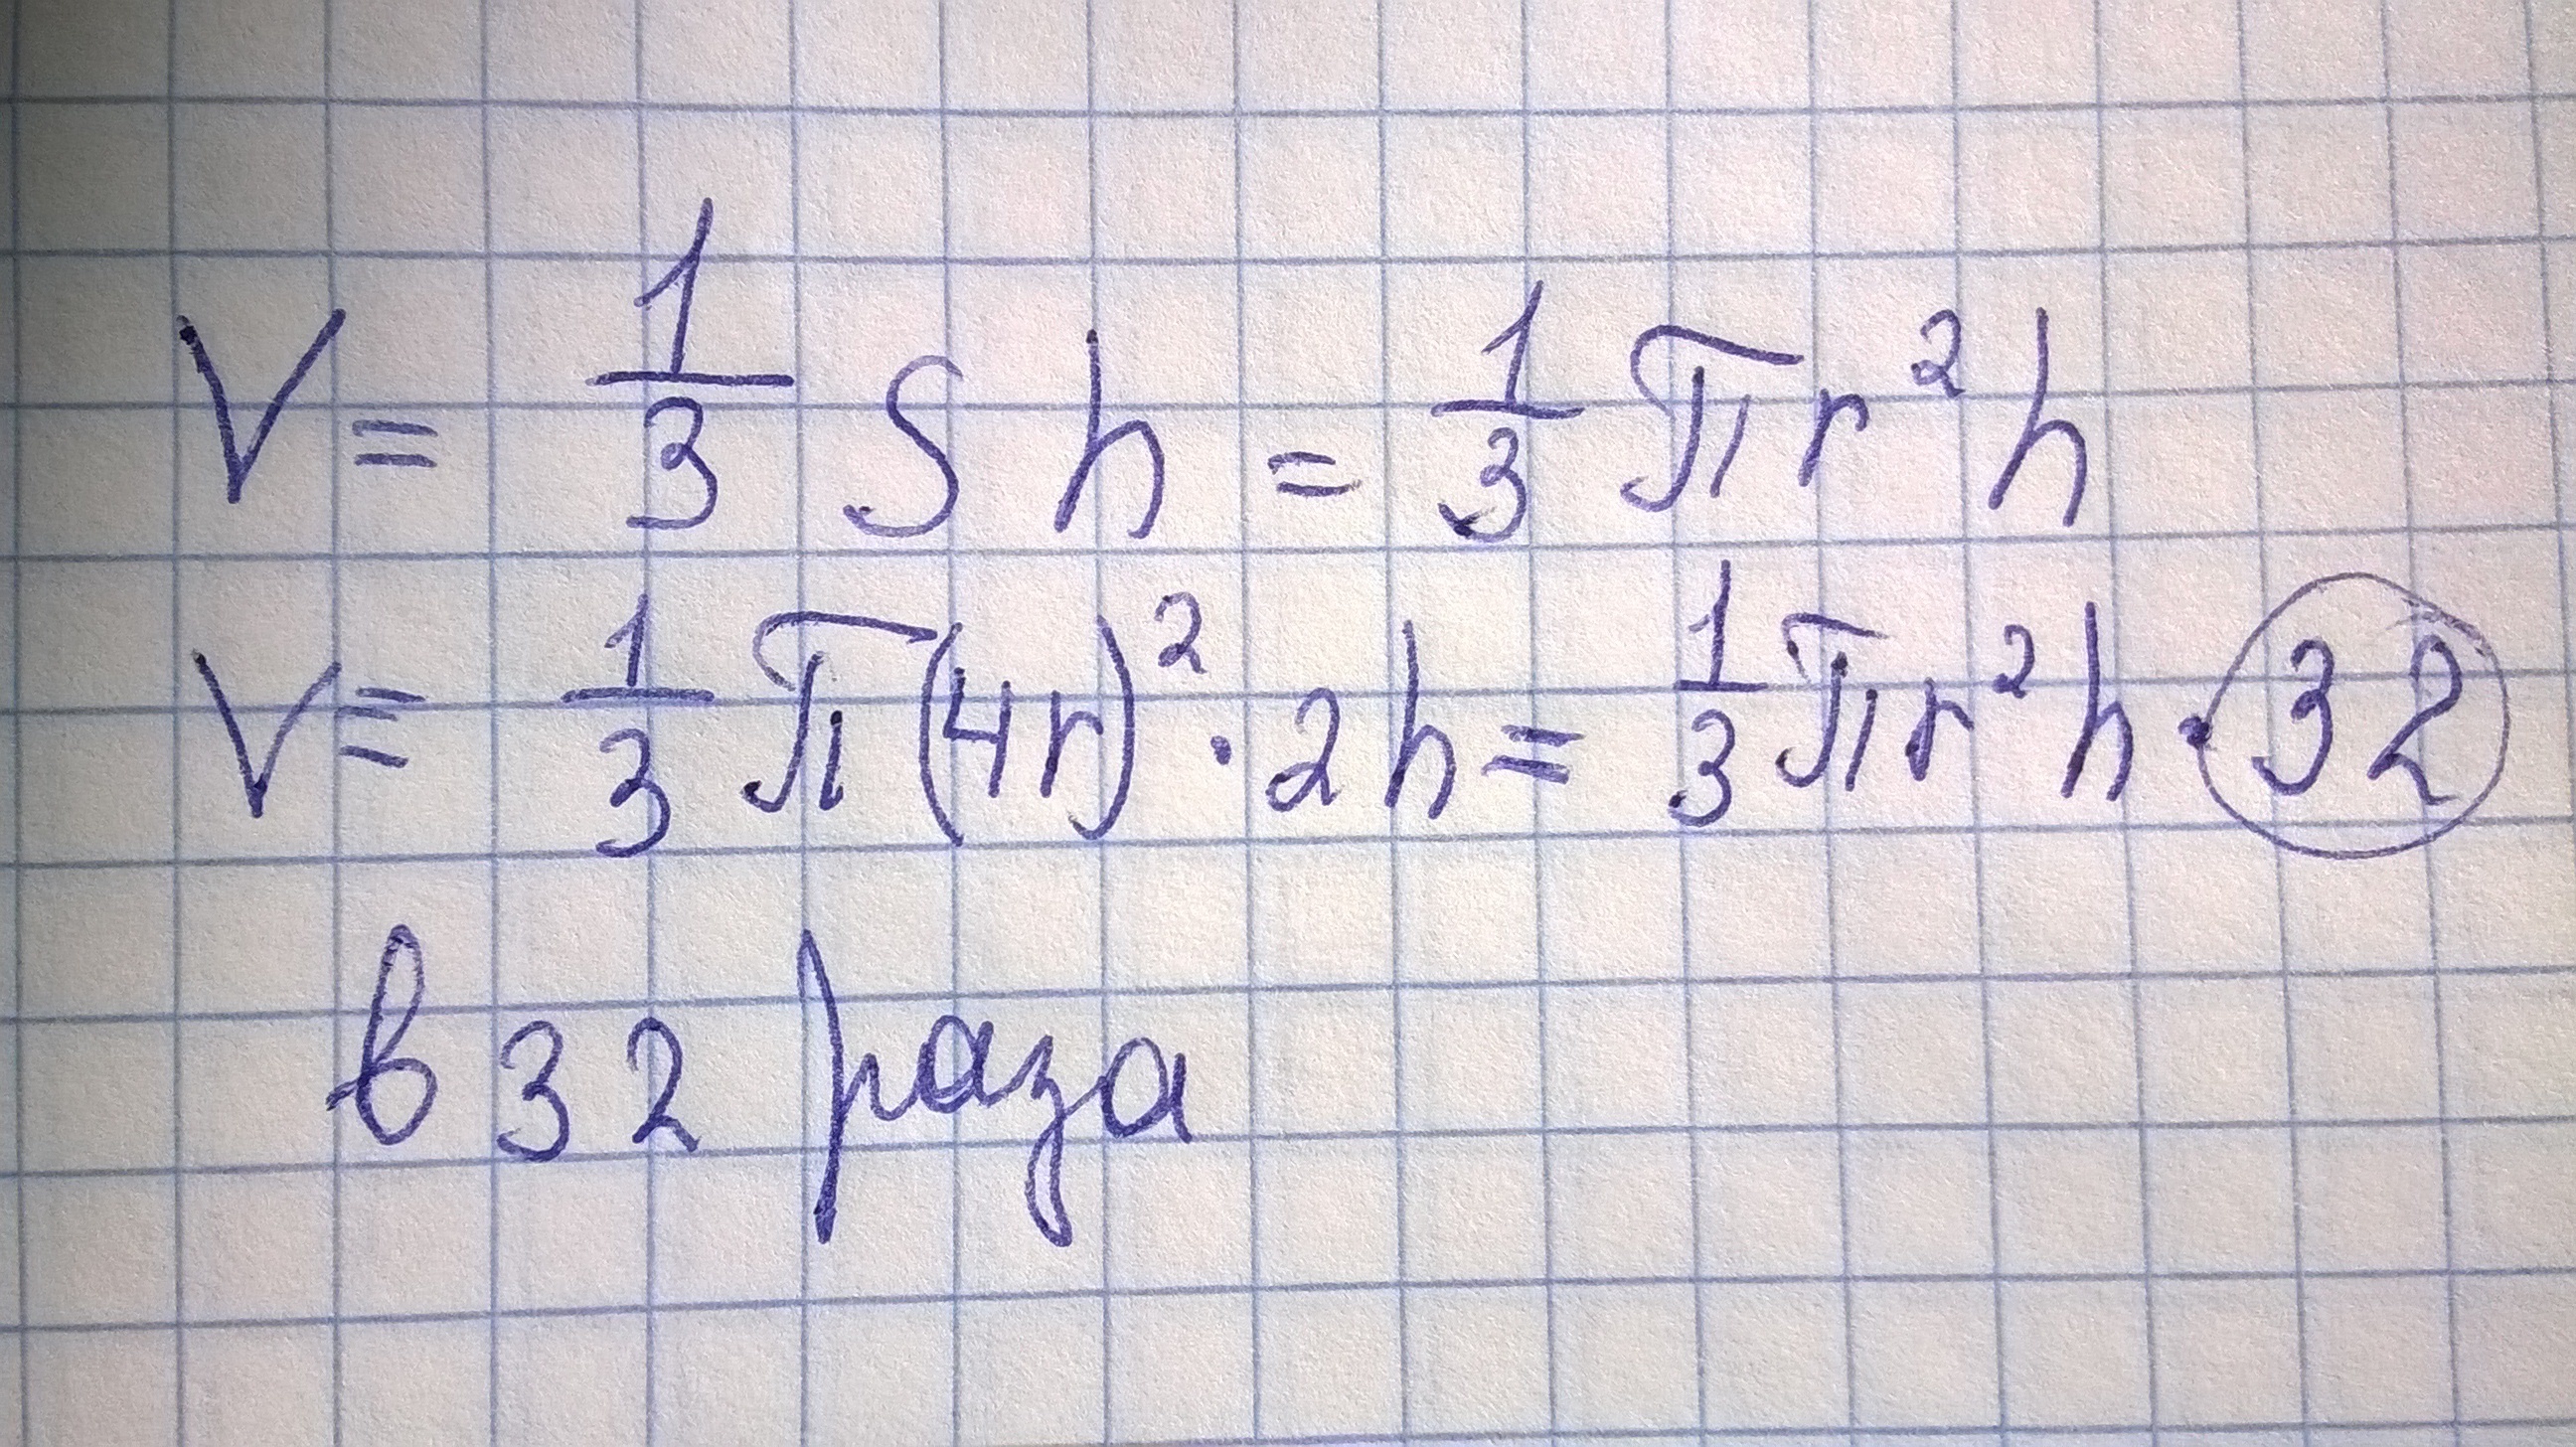 V = 1/3 S h = 1/3 π r² h
V = 1/3 π (4r)² · 2h = 1/3 π r² h · 32
в 32 раза